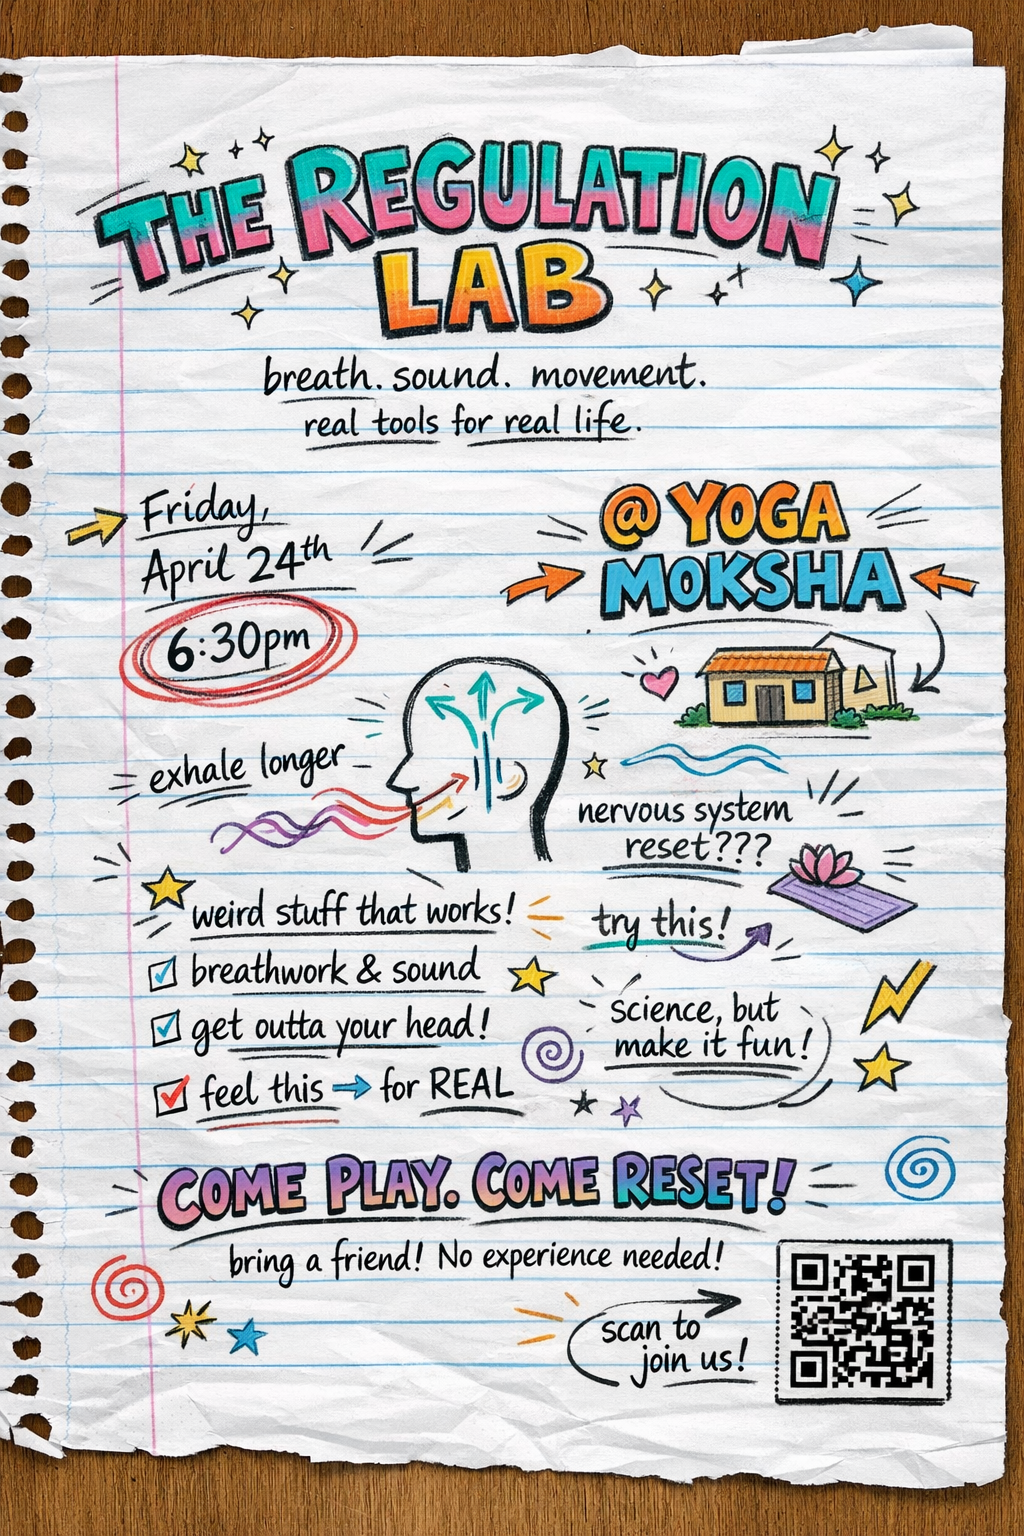 THE REGULATION
LAB
breath. sound. movement.
real tools for real life.
Friday,
April 24th
6:30pm
@ YOGA
MOKSHA
exhale longer
nervous system
reset???
try this!
weird stuff that works!
breathwork & sound
get outta your head!
feel this → for REAL
science, but
make it fun!
COME PLAY. COME RESET!
bring a friend! No experience needed!
scan to
join us!